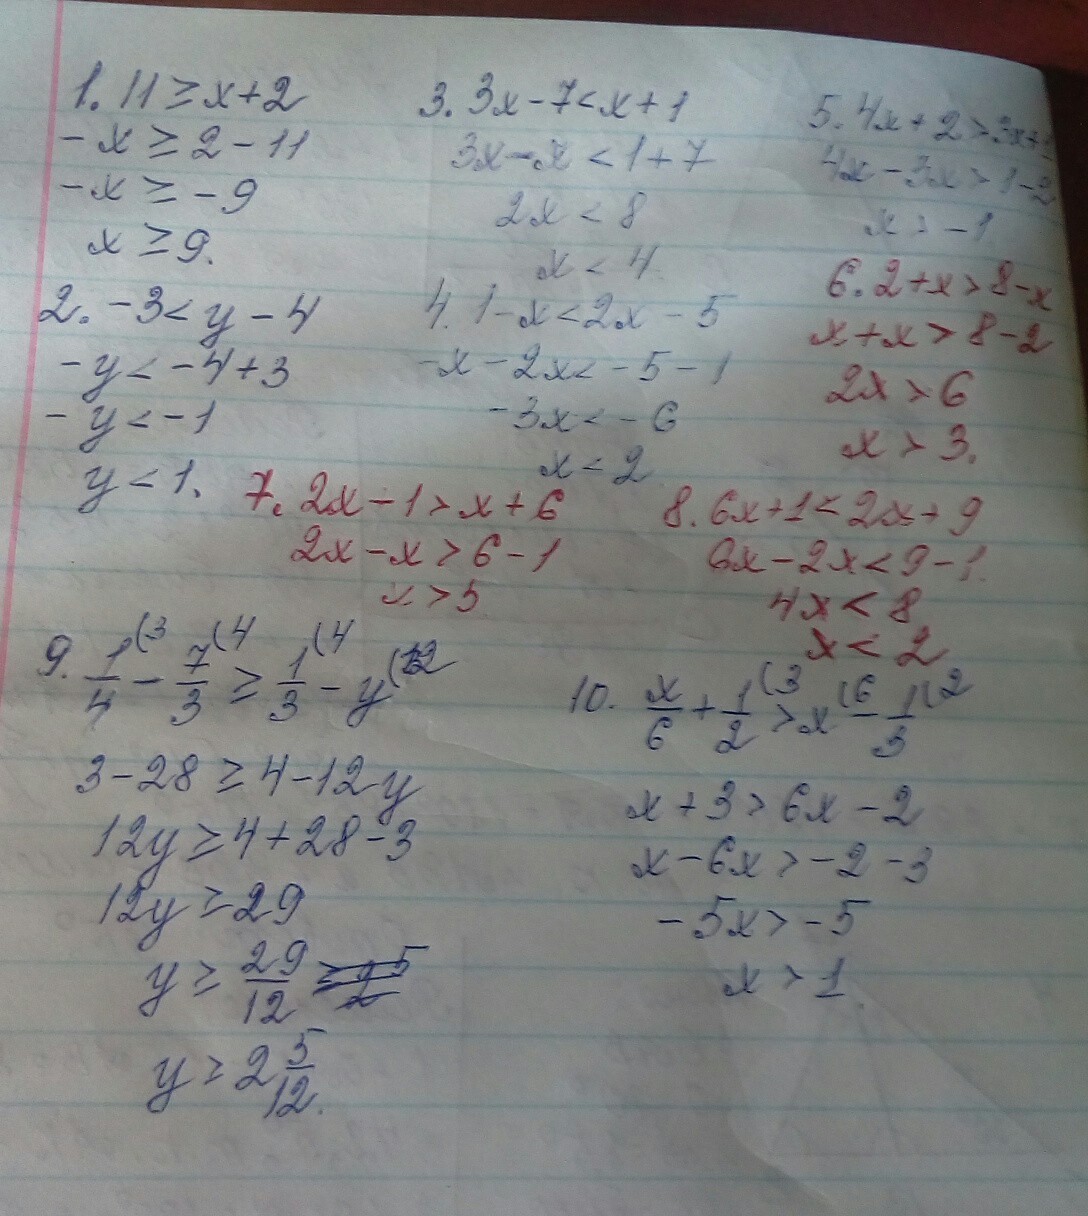 1. 11 ≥ x+2
-x ≥ 2-11
-x ≥ -9
x ≥ 9.
2. -3 < y - 4
-y < -4+3
-y < -1
y < 1.
3. 3x - 7 < x + 1
3x - x < 1 + 7
2x < 8
x < 4
4. 1 - x < 2x - 5
-x - 2x < -5 - 1
-3x < -6
x < 2
5. 4x + 2 > 3x +
4x - 3x > 1 - 2
x > -1
6. 2+x > 8-x
x+x > 8-2
2x > 6
x > 3.
7. 2x - 1 > x + 6
2x - x > 6 - 1
x > 5
8. 6x+1 < 2x+9
6x - 2x < 9 - 1.
4x < 8
x < 2
9. 1/4 (3 - 7/3 (4 ≥ 1/3 (4 - y (12
3 - 28 ≥ 4 - 12y
12y ≥ 4 + 28 - 3
12y ≥ 29
y ≥ 29/12
y ≥ 2 5/12.
10. x/6 + 1/2 (3 > x (6 - 1/3 (2
x + 3 > 6x - 2
x - 6x > -2 - 3
-5x > -5
x > 1